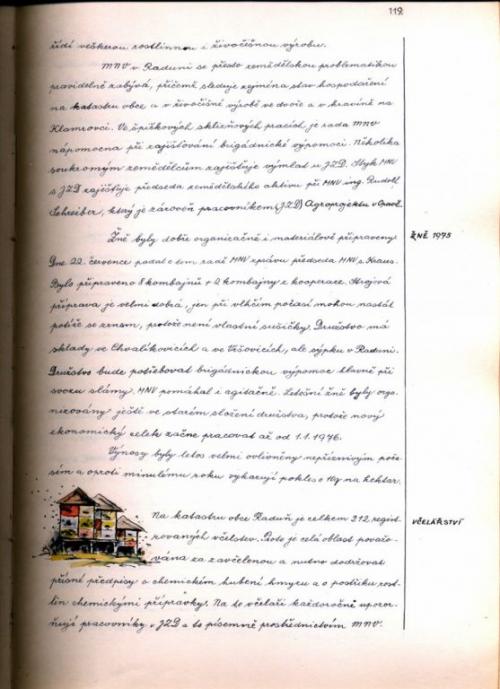 119
řídí veškerou rostlinnou i živočišnou výrobu.
MNV v Raduni se přesto zemědělskou problematikou
pravidelně zabývá, přičemž sleduje zejména stav hospodaření
na katastru obce a v živočišné výrobě ve dvoře a v kravíně na
Klamrovci. Ve špičkových sklizňových pracích je rada MNV
nápomocna při zajišťování brigádnické výpomoci. Několika
soukromým zemědělcům zajišťuje výmlat u JZD. Styk MNV
s JZD zajišťuje předseda zemědělského aktivu při MNV ing. Rudolf
Schreiber, který je zároveň pracovníkem (JZD) Agroprojektu v Opavě.
Žně byly dobře organizačně i materiálově připraveny
ŽNĚ 1975
Dne 22. července podal o tom radě MNV zprávu předseda MNV s. Kraus.
Bylo připraveno 8 kombajnů + 2 kombajny z kooperace. Strojová
příprava je velmi dobrá, jen při vlhčím počasí mohou nastat
potíže se zrnem, protože není vlastní sušičky. Družstvo má
sklady ve Chvalíkovicích a ve Vršovicích, ale sýpku v Raduni.
Družstvo bude potřebovat brigádnickou výpomoc hlavně při
svozu slámy. MNV pomáhal i agitačně. Letošní žně byly orga-
nizovány ještě ve starém složení družstva, protože nový
ekonomický celek začne pracovat až od 1.1.1976.
Výnosy byly letos velmi ovlivněny nepříznivým poča-
sím a oproti minulému roku vykazují pokles o 10q na hektar.
Na katastru obce Raduň je celkem 212 regist-
VČELAŘSTVÍ
rovaných včelstev. Proto je celá oblast považo-
vána za zavčelenou a nutno dodržovat
přísné předpisy o chemickém hubení hmyzu a o postřiku rost-
lin chemickými přípravky. Na to včelaři každoročně upozor-
ňují pracovníky v JZD a to písemně prostřednictvím MNV.